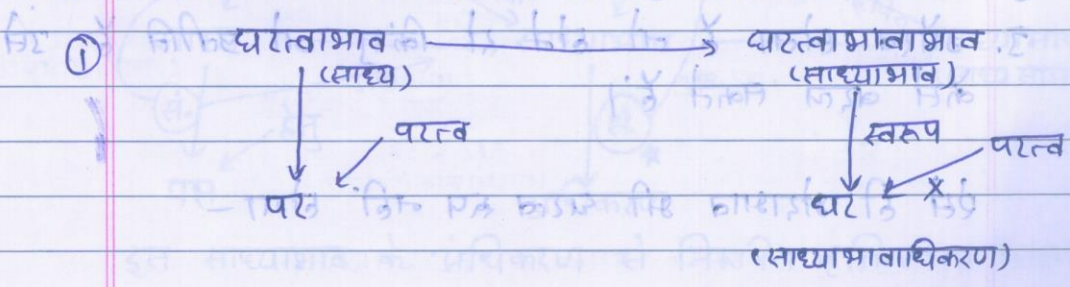 ① घटत्वाभाव → घटत्वाभावाभाव
(साध्य) (साध्याभाव)
पटत्व स्वरूप पटत्व
पट घट
(साध्याभावाधिकरण)